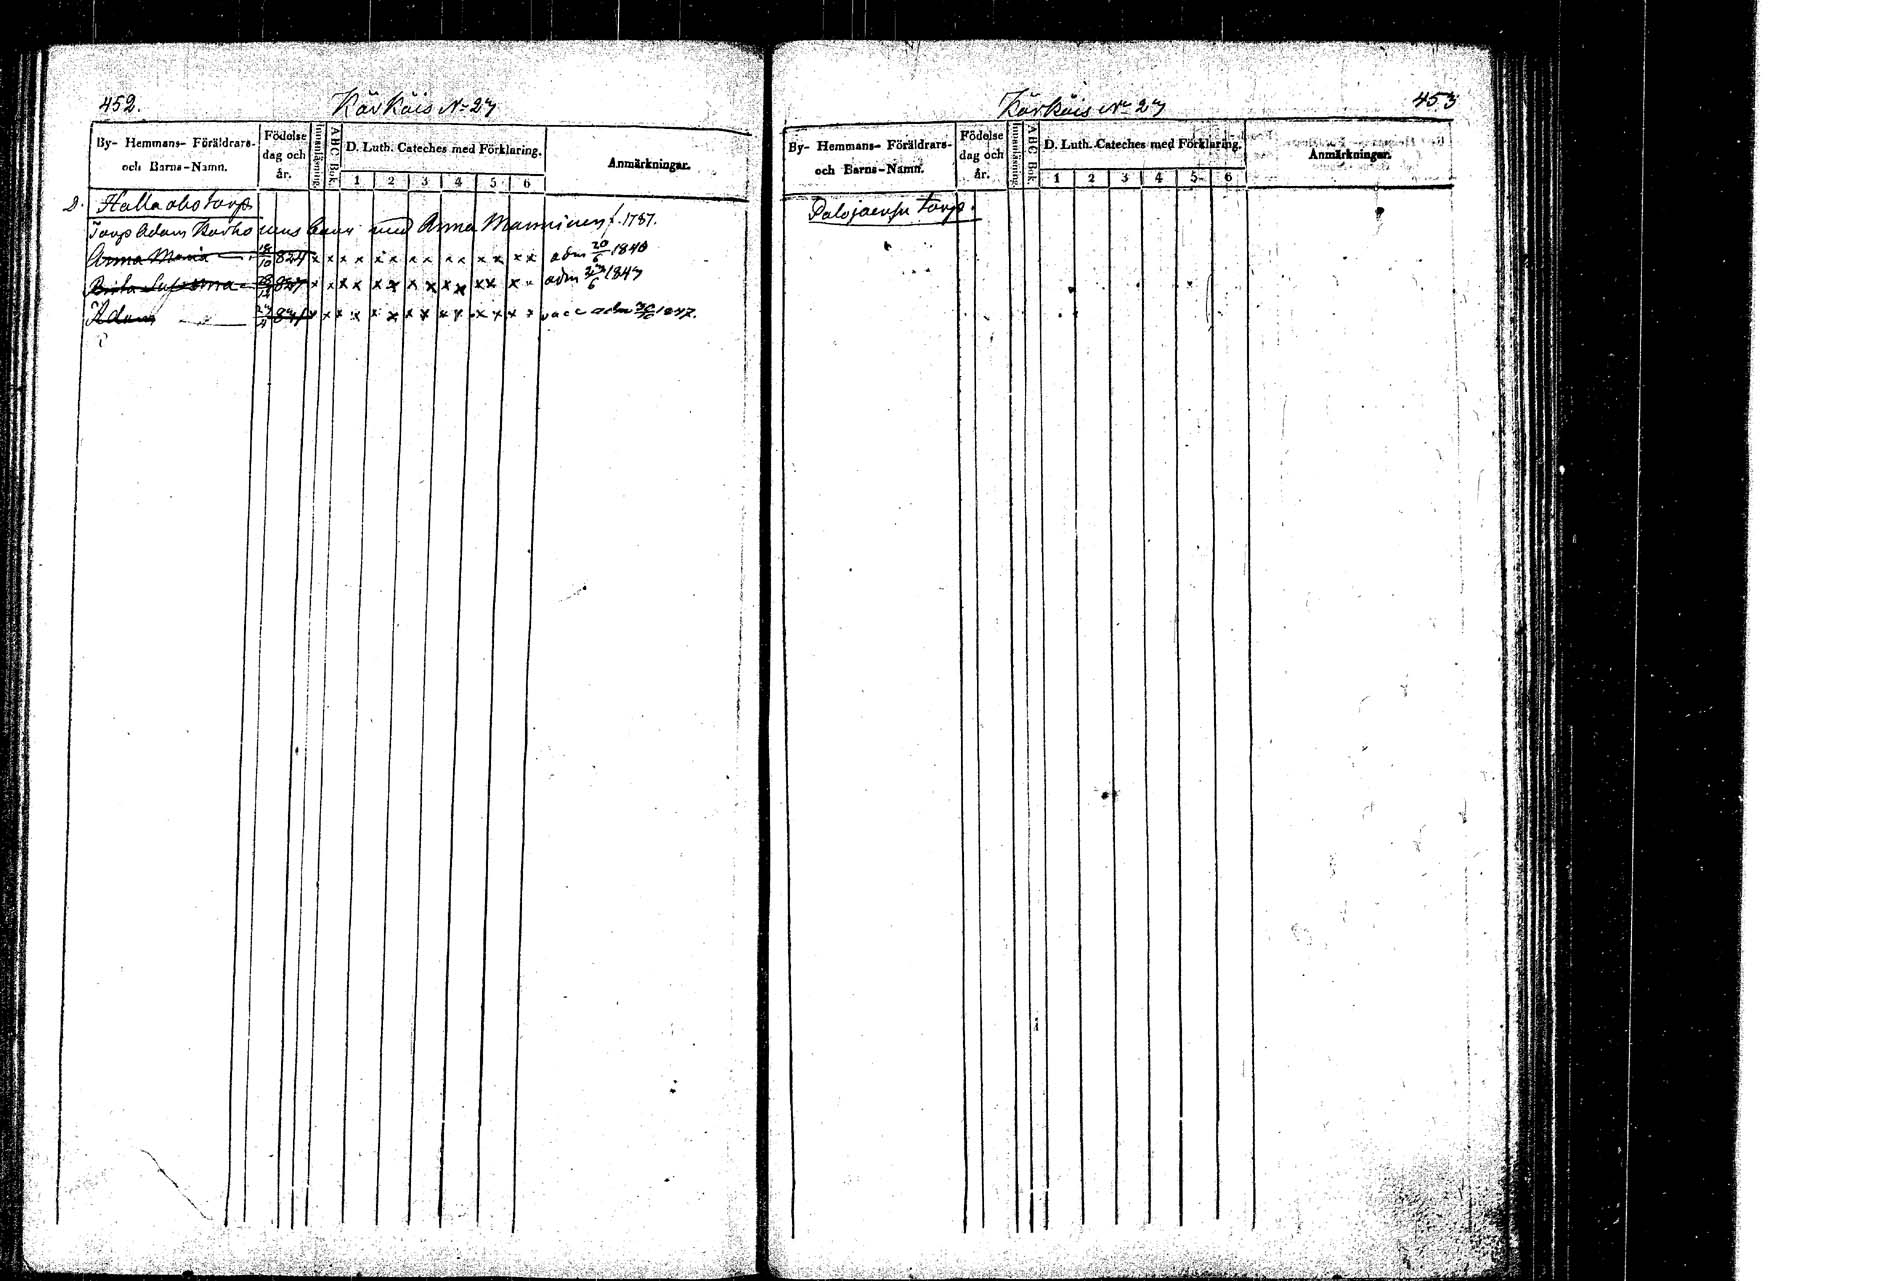 452.
Kärkäis No 27
By- Hemmans- Föräldrars-
och Barns-Namn.
Födelse
dag och
år.
Innanläsning.
ABC Bok.
D. Luth. Cateches med Förklaring.
1 2 3 4 5 6
Anmärkningar.
2. Hallaaho torp
Torp Adam Korhonens barn med Anna Manninen f. 1787.
Anna Maria 18/10 824 x x x x x x x x x x x x x x adm 20/6 1840
Brita x x x x x x x x x x x x adm 1843
Adam x x x x x x x x x x x x x vacc adm 1847.
Kärkäis No 27
453
By- Hemmans- Föräldrars-
och Barns-Namn.
Födelse
dag och
år.
Innanläsning.
ABC Bok.
D. Luth. Cateches med Förklaring.
1 2 3 4 5 6
Anmärkningar.
torp.